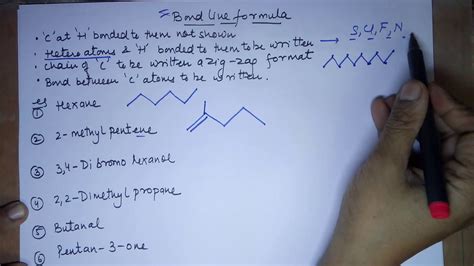 = Bond line formula
• 'C' at 'H' bonded to them not shown
• Hetero atoms & 'H' bonded to them to be written → S, Cl, F, N
• chain of 'C' to be written a zig-zap format
• Bond between 'C' atoms to be written.
eg
① Hexane
② 2-methyl pentene
③ 3,4-Dibromo hexanol
④ 2,2-Dimethyl propane
⑤ Butanal
⑥ Pentan-3-one